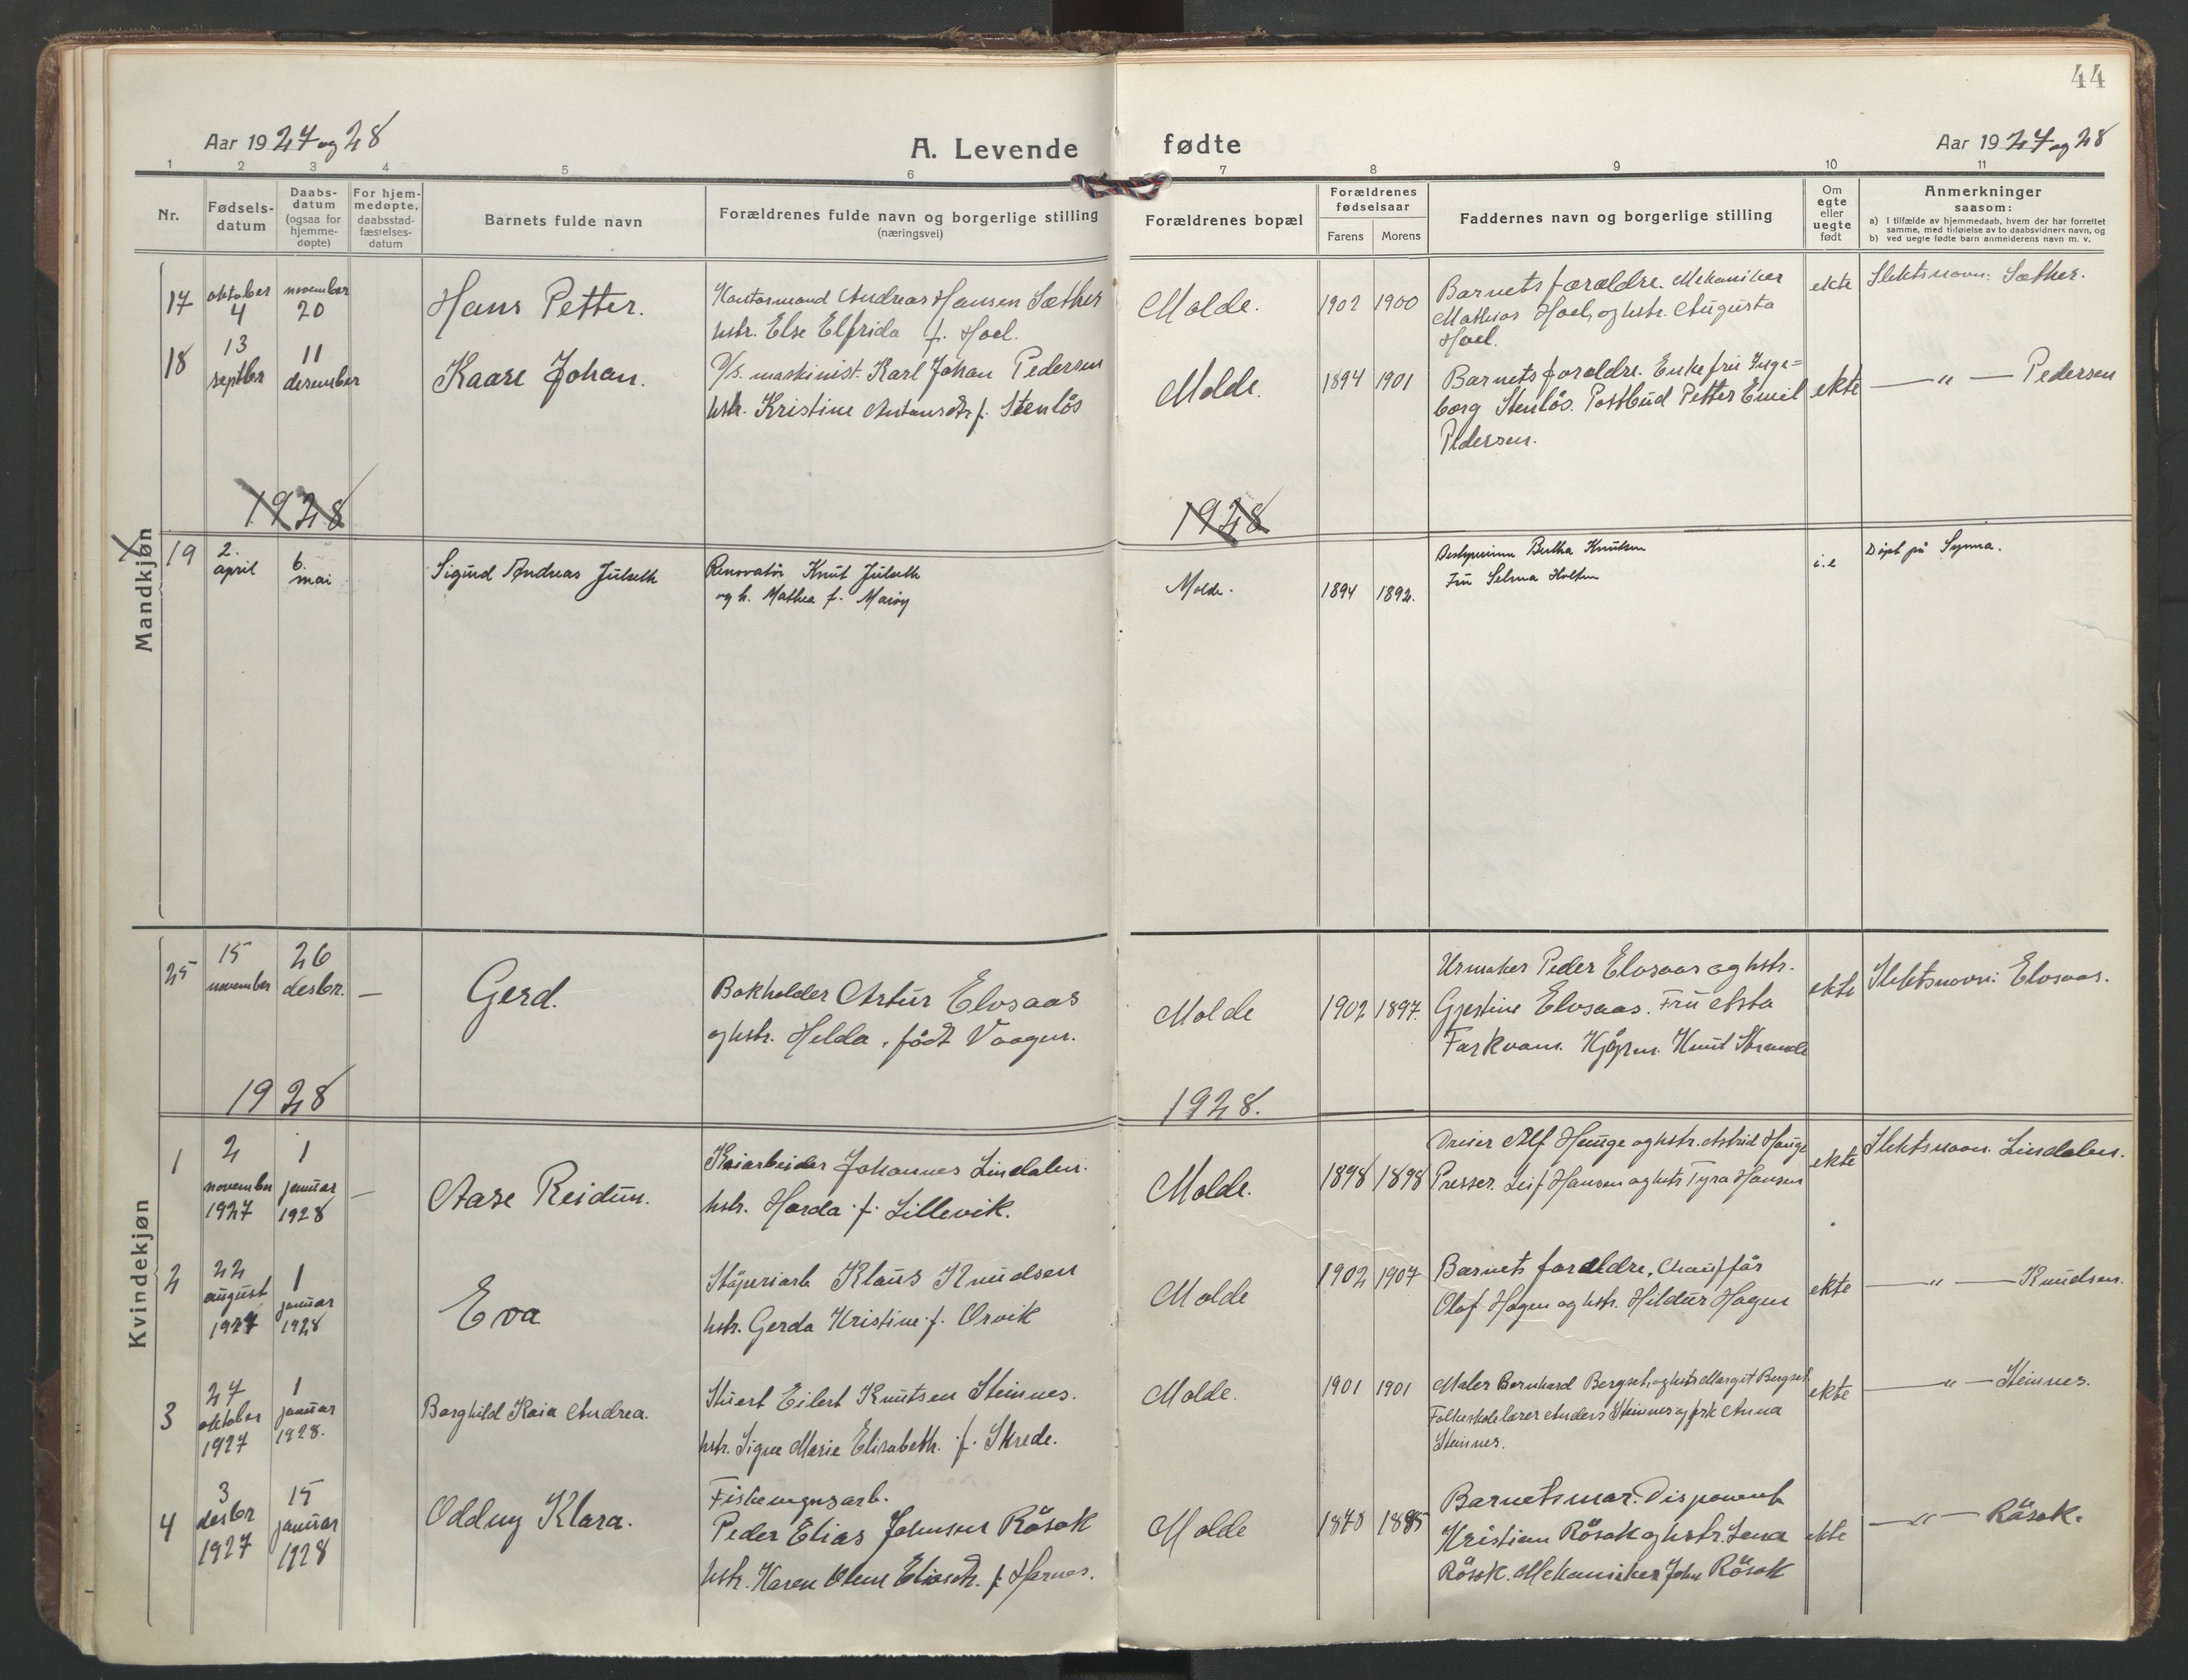 44
Aar 1927 og 28
A. Levende fødte
Aar 1927 og 28
1 2 3 4 5 6 7 8 9 10 11
Nr.
Fødsels-
datum
Daabs-
datum
(ogsaa for
hjemme-
døpte)
For hjem-
medøpte,
daabsstad-
fæstelses-
datum
Barnets fulde navn
Forældrenes fulde navn og borgerlige stilling
(næringsvei)
Forældrenes bopæl
Forældrenes
fødselsaar
Farens Morens
Faddernes navn og borgerlige stilling
Om
egte
eller
uegte
født
Anmerkninger
saasom:
a) I tilfælde av hjemmedaab, hvem der har forrettet
samme, med tilføielse av to daabsvidners navn, og
b) ved uegte fødte barn anmelderens navn m. v.
Mandkjøn
17
oktober
4
november
20
Hans Petter.
Kontormand Andreas Hansen Sæther
hstr. Else Elfrida f. Hoel.
Molde.
1902 1900
Barnets forældre. Mekaniker
Mathias Hoel, og hstr. Augusta
Hoel.
ekte
Slektsnavn: Sæther.
18
13
septbr
11
desember
Kaare Johan.
D/s. maskinist. Karl Johan Pedersen
hstr. Kristine Antonsdtr f. Stenlös
Molde.
1894 1901
Barnets forældre. Enkefru Inge=
borg Stenlös. Postbud Petter Emil
Pedersen.
ekte
— " — Pedersen
1928
1928
19
2.
april
6.
mai
Sigurd Andreas Julseth
Renovatør Knut Julseth
og h. Mathea f. Marøy
Molde.
1894 1892.
Bestyrerinne Bertha Knutsen
Fru Selma Holten
i.e
Døpt på Synna.
Kvindekjøn
25
15
november
26
desbr.
—
Gerd.
Bokholder Artur Elvsaas
og hstr. Helda, født Vaagen.
Molde
1902 1897.
Urmaker Peder Elvsaas og hstr.
Gjertine Elvsaas. Fru Asta
Farkvam. Kjøpm. Knut Strande
ekte
Slektsnavn: Elvsaas.
1928
1928.
1
2
november
1927
1
januar
1928
—
Aase Reidun.
Kaiarbeider Johannes Lindalen.
hstr. Harda f. Lillevik.
Molde.
1898 1898
Dreier Alf Hauge og hstr. Astrid Hauge
Presser. Leif Hansen og hstr Tyra Hansen
ekte
Slektsnavn. Lindalen.
2
22
august
1927
1
januar
1928
Eva
Støperiarb Klaus Knudsen
hstr. Gerda Kristine f. Orvik
Molde
1902 1907
Barnets forældre, Chauffør
Olaf Hagen og hstr. Hildur Hagen
ekte
— " — Knudsen.
3
27
oktober
1927
1
januar
1928.
Borghild Kaia Andrea.
Stuert Eilert Knutsen Steinnes.
hstr. Signe Marie Elisabeth. f. Skrede.
Molde.
1901 1901
Maler Bernhard Bergset, og hstr Margit Bergset
Folkeskolelærer Anders Steinnes og frk Anna
Steinnes.
ekte
— " — Steinnes.
4
3
desbr
1927
15
januar
1928
Oddny Klara.
Peder Elias Johnsen Rösok
hstr. Karen Oline Eliasdtr. f. Harnes.
Molde
1878 1885
Barnets mor. Disponent
Kristian Rösok og hstr. Lena
Rösok. Mekaniker John Rösok
ekte
— " — Rösok.